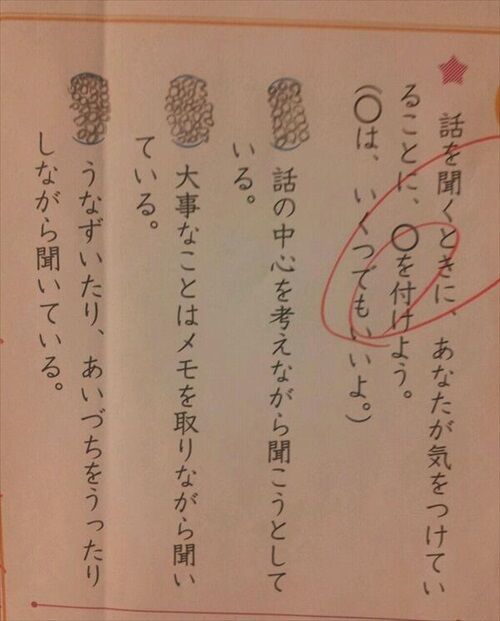 話を聞くときに、あなたが気をつけてい
ることに、○を付けよう。
(○は、いくつでもいいよ。)
話の中心を考えながら聞こうとして
いる。
大事なことはメモを取りながら聞い
ている。
うなずいたり、あいづちをうったり
しながら聞いている。